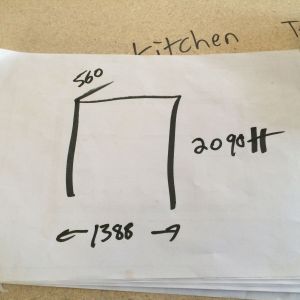 kitchen T
560
2090 H
1388